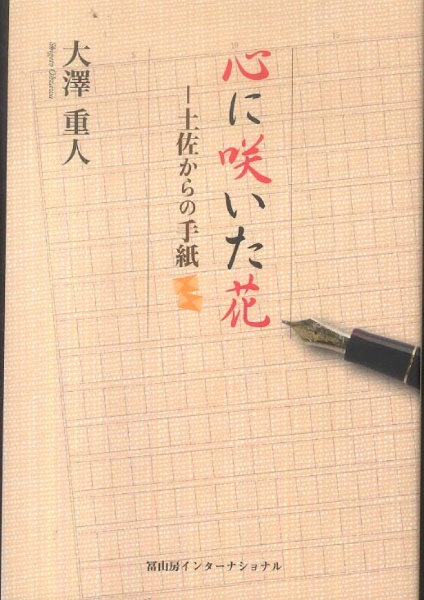 心に咲いた花
―土佐からの手紙
大澤 重人
Shigeto Ohsawa
冨山房インターナショナル